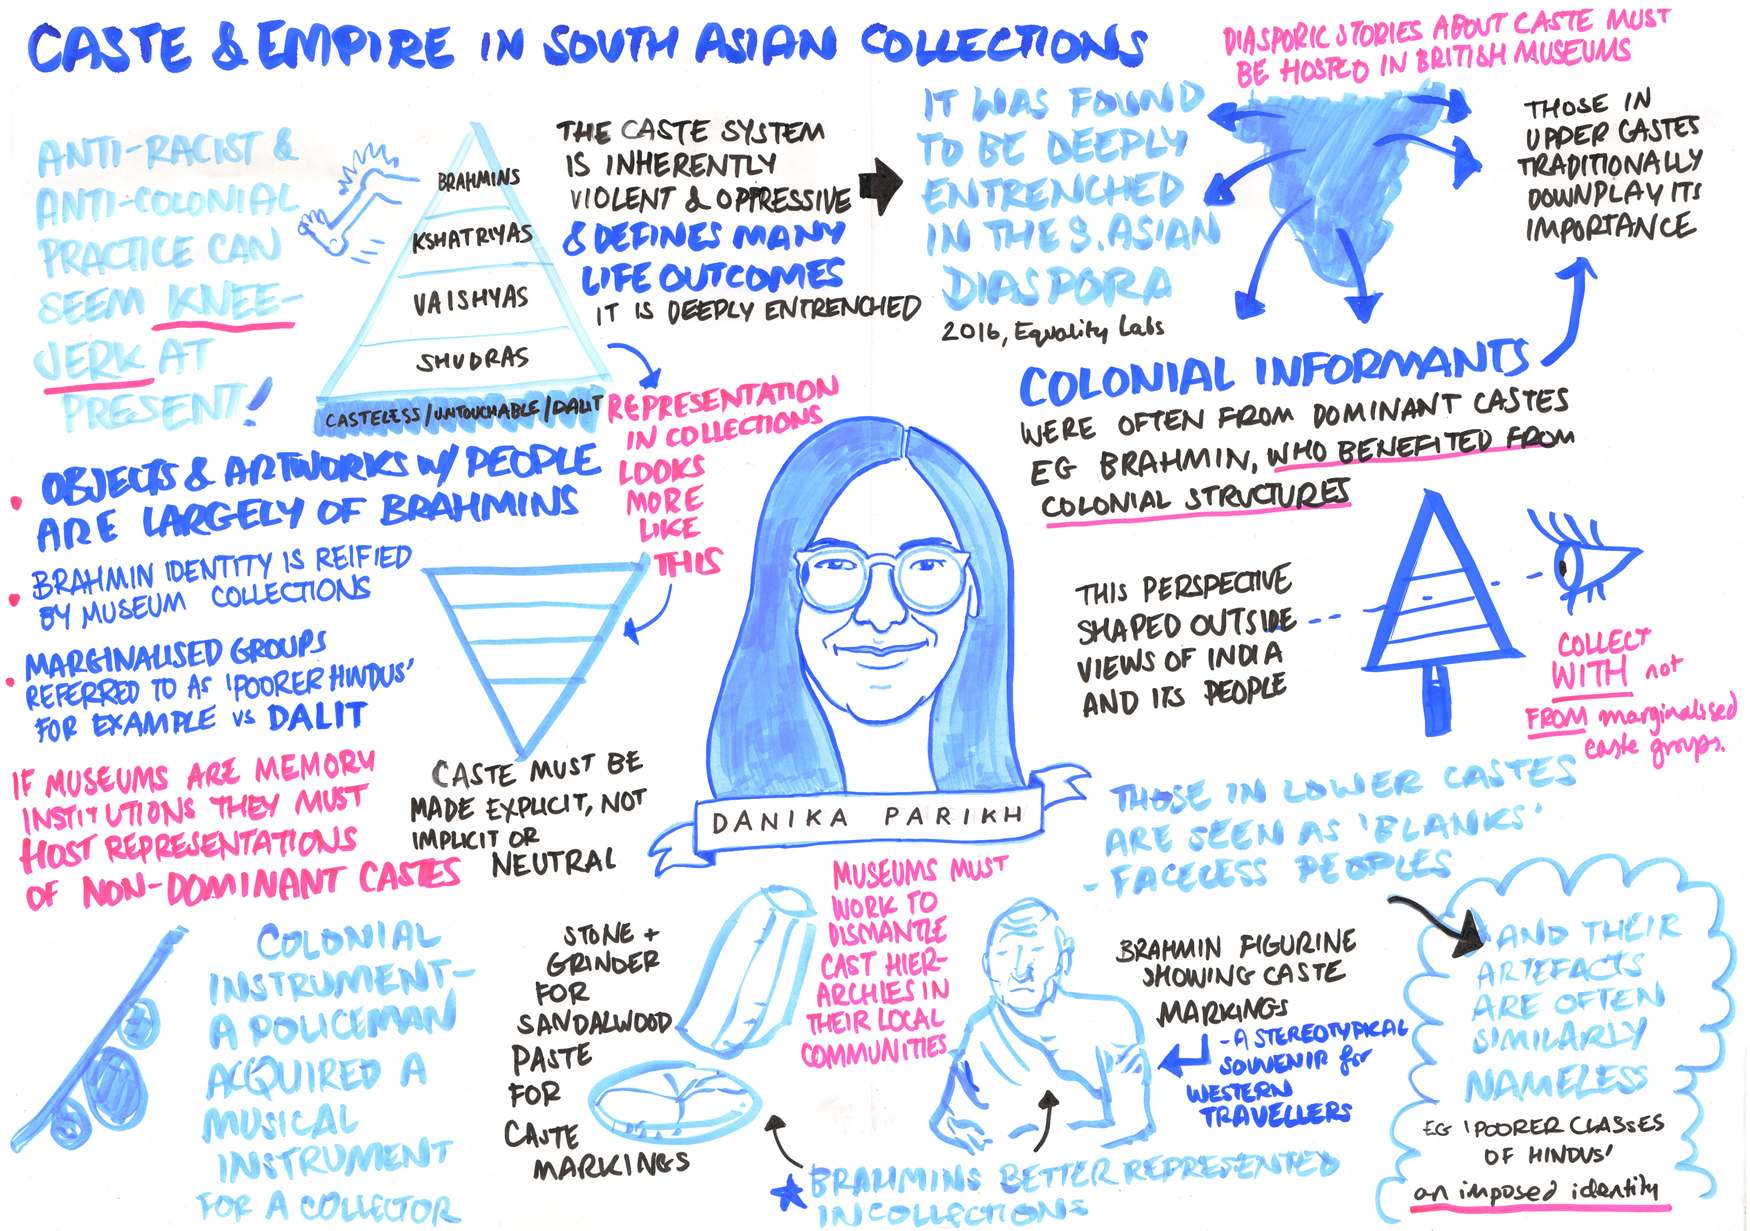 CASTE & EMPIRE IN SOUTH ASIAN COLLECTIONS
DIASPORIC STORIES ABOUT CASTE MUST
BE HOSTED IN BRITISH MUSEUMS
ANTI-RACIST &
ANTI-COLONIAL
PRACTICE CAN
SEEM KNEE-
JERK AT
PRESENT!
BRAHMINS
KSHATRIYAS
VAISHYAS
SHUDRAS
CASTELESS/UNTOUCHABLE/DALIT
THE CASTE SYSTEM
IS INHERENTLY
VIOLENT & OPPRESSIVE
& DEFINES MANY
LIFE OUTCOMES
IT IS DEEPLY ENTRENCHED
IT WAS FOUND
TO BE DEEPLY
ENTRENCHED
IN THE S. ASIAN
DIASPORA
2016, Equality Labs
THOSE IN
UPPER CASTES
TRADITIONALLY
DOWNPLAY ITS
IMPORTANCE
REPRESENTATION
IN COLLECTIONS
LOOKS
MORE
LIKE
THIS
COLONIAL INFORMANTS
WERE OFTEN FROM DOMINANT CASTES
EG BRAHMIN, WHO BENEFITED FROM
COLONIAL STRUCTURES
• OBJECTS & ARTWORKS W/ PEOPLE
ARE LARGELY OF BRAHMINS
• BRAHMIN IDENTITY IS REIFIED
BY MUSEUM COLLECTIONS
• MARGINALISED GROUPS
REFERRED TO AS 'POORER HINDUS'
FOR EXAMPLE VS DALIT
THIS PERSPECTIVE
SHAPED OUTSIDE
VIEWS OF INDIA
AND ITS PEOPLE
COLLECT
WITH not
FROM marginalised
caste groups.
IF MUSEUMS ARE MEMORY
INSTITUTIONS THEY MUST
HOST REPRESENTATIONS
OF NON-DOMINANT CASTES
CASTE MUST BE
MADE EXPLICIT, NOT
IMPLICIT OR
NEUTRAL
DANIKA PARIKH
THOSE IN LOWER CASTES
ARE SEEN AS 'BLANKS'
- FACELESS PEOPLES
AND THEIR
ARTEFACTS
ARE OFTEN
SIMILARLY
NAMELESS
EG 'POORER CLASSES
OF HINDUS'
an imposed identity
COLONIAL
INSTRUMENT-
A POLICEMAN
ACQUIRED A
MUSICAL
INSTRUMENT
FOR A COLLECTOR
STONE +
GRINDER
FOR
SANDALWOOD
PASTE
FOR
CASTE
MARKINGS
MUSEUMS MUST
WORK TO
DISMANTLE
CAST HIER-
ARCHIES IN
THEIR LOCAL
COMMUNITIES
BRAHMIN FIGURINE
SHOWING CASTE
MARKINGS
- A STEREOTYPICAL
SOUVENIR for
WESTERN
TRAVELLERS
BRAHMINS BETTER REPRESENTED
IN COLLECTIONS